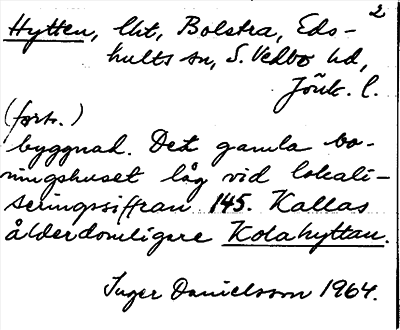 2
Hytten, lht, Bolstra, Eds-
hults sn, S. Vedbo hd,
Jönk. l.
(forts.)
byggnad. Det gamla bo-
ningshuset låg vid lokali-
seringssiffran 145. Kallas
ålderdomligare Kolahyttan.
Inger Danielsson 1964.